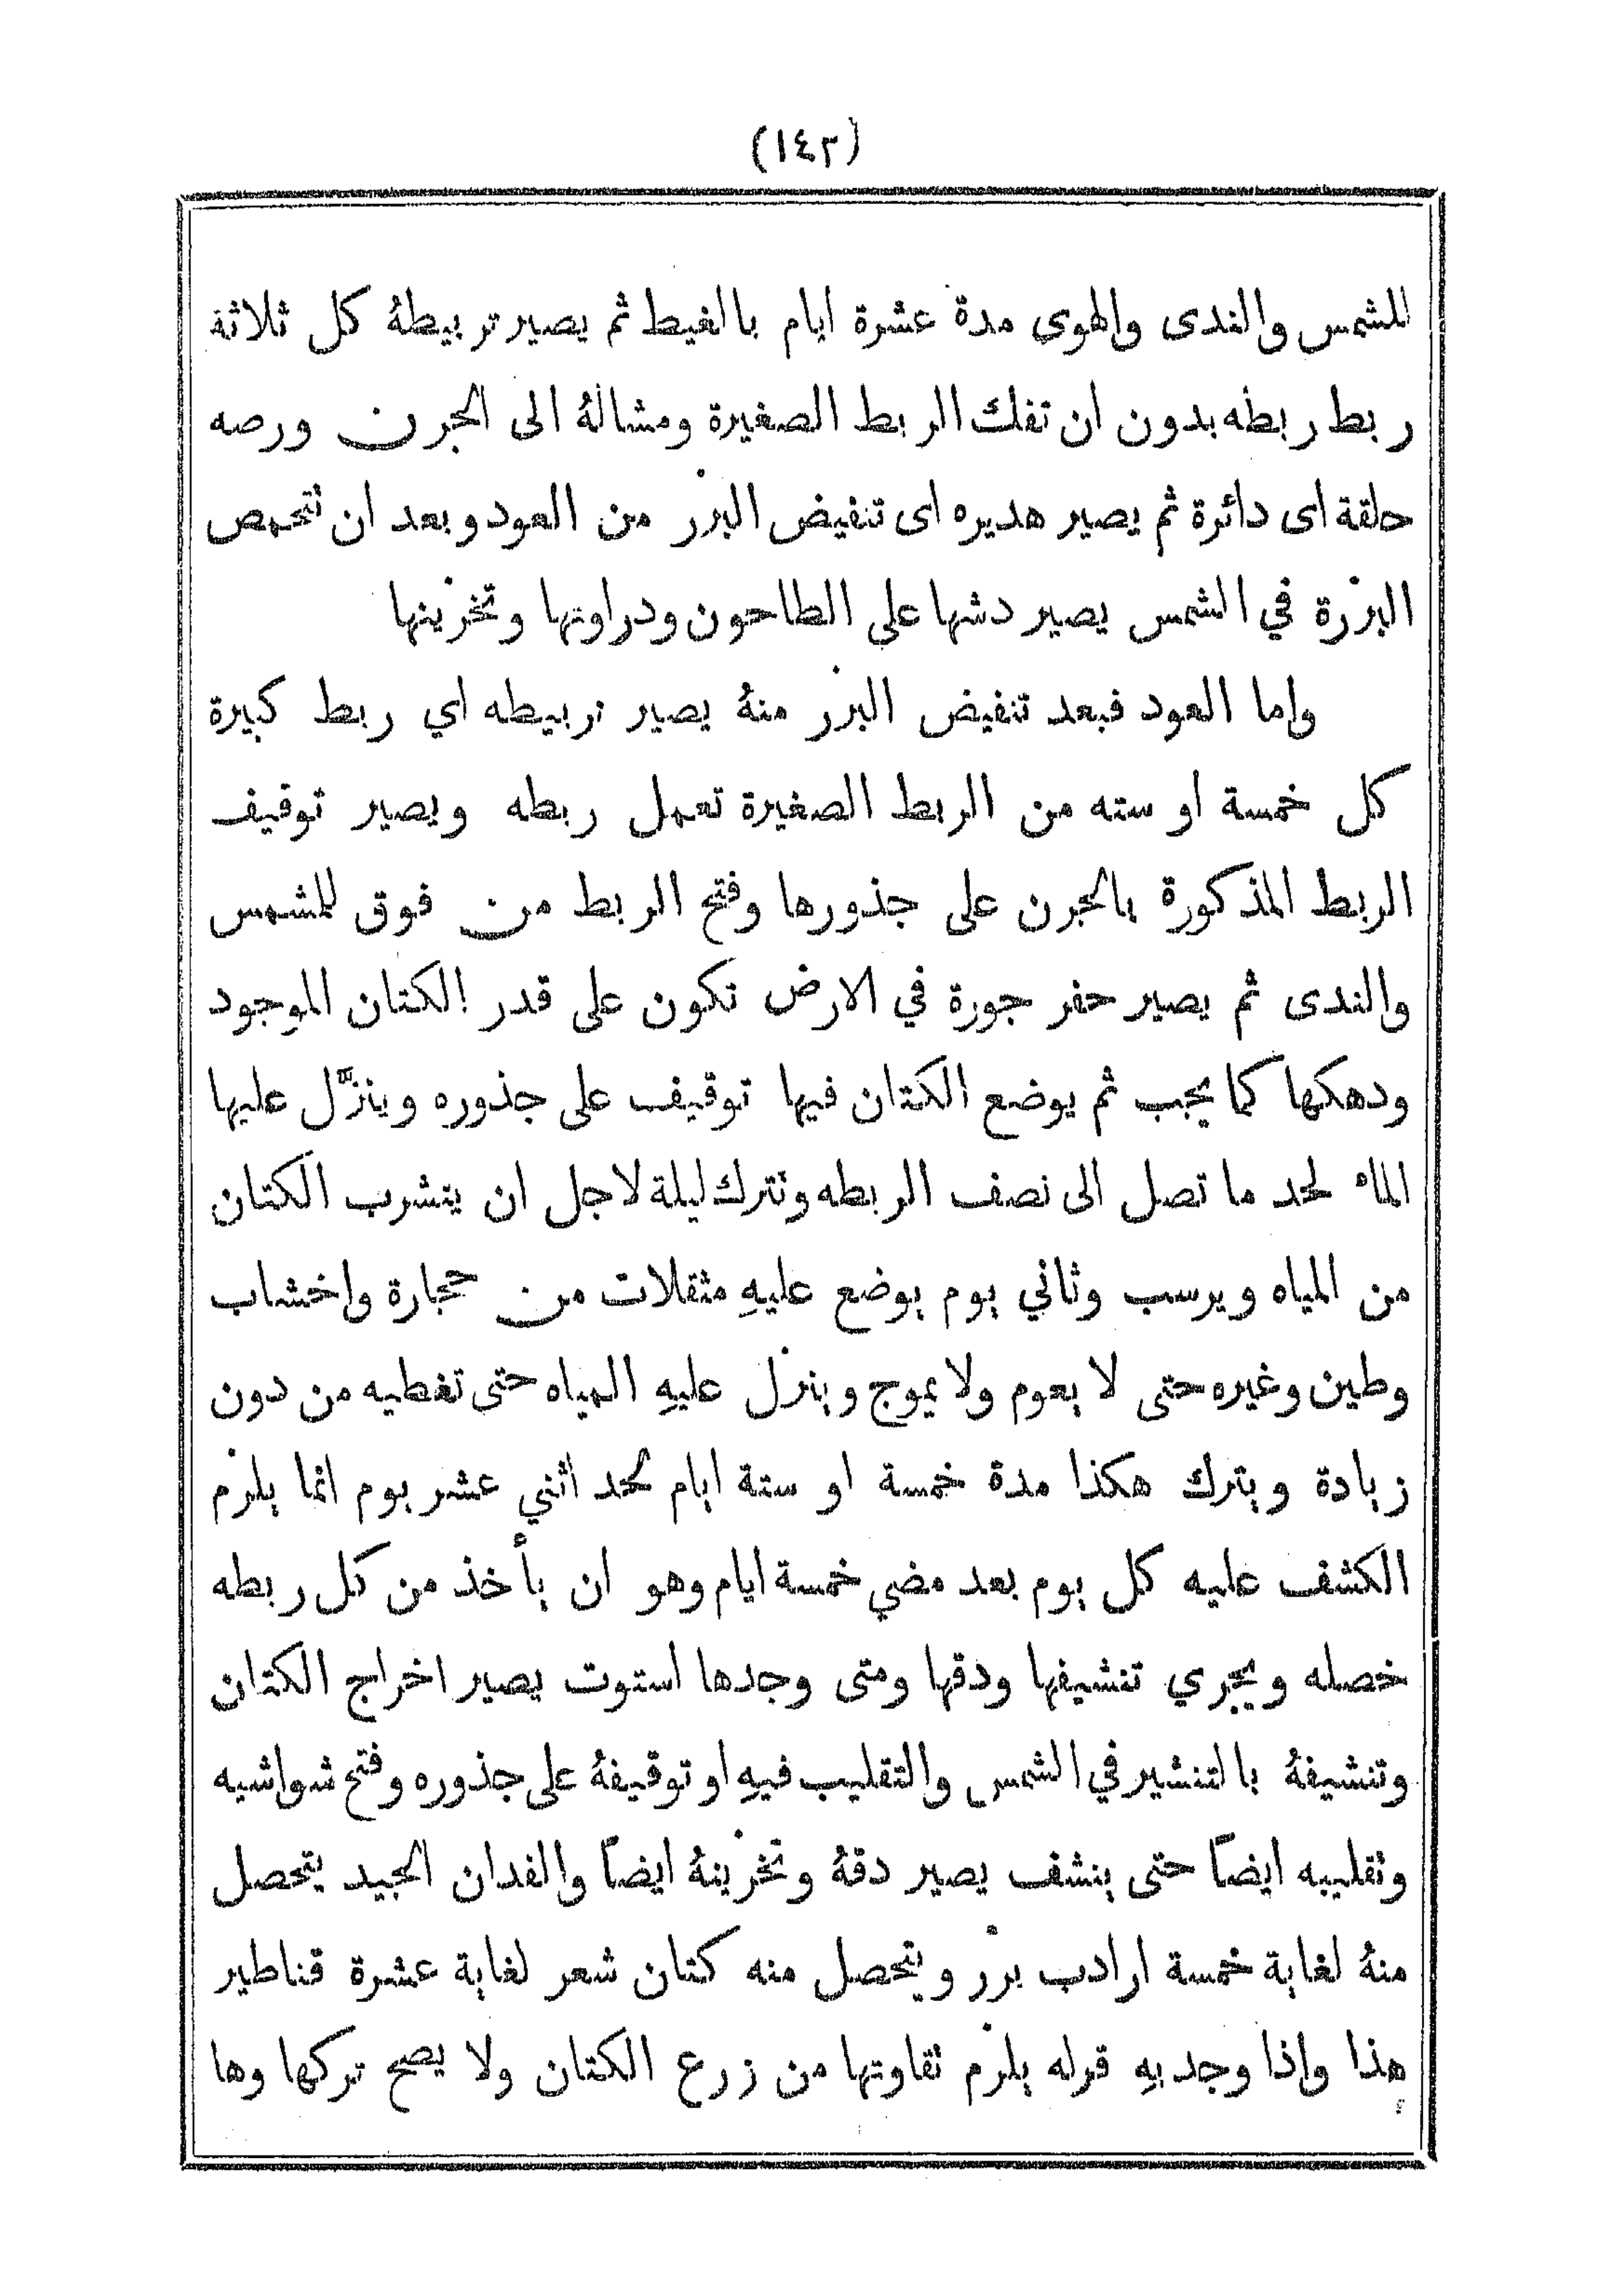 (١٤٢)
للشمس والندى والهوى مدة عشرة ايام بالغيط ثم يصير تربيطهُ كل ثلاثة
ربط ربطه بدون ان تفك الربط الصغيرة ومشالهُ الى الجرن ورصه
حلقة اى دائرة ثم يصير هديره اى تنفيض البزر من العود وبعد ان تتحمص
البزرة في الشمس يصير دشها على الطاحون ودراوتها وتخزينها
واما العود فبعد تنفيض البزر منهُ يصير تربيطه اي ربط كبيرة
كل خمسة او سته من الربط الصغيرة تعمل ربطه ويصير توقيف
الربط المذكورة بالجرن على جذورها وفتح الربط من فوق للشمس
والندى ثم يصير حفر جورة في الارض تكون على قدر الكتان الموجود
ودهكها كما يجب ثم يوضع الكتان فيها توقيف على جذوره وينزَّل عليها
الماء لحد ما تصل الى نصف الربطه وتترك ليلة لاجل ان يتشرب الكتان
من المياه ويرسب وثاني يوم يوضع عليهِ مثقلات من حجارة واخشاب
وطين وغيره حتى لا يعوم ولا يموج وينزل عليهِ المياه حتى تغطيه من دون
زيادة ويترك هكذا مدة خمسة او ستة ايام لحد اثني عشر يوم انما يلزم
الكشف عليه كل يوم بعد مضي خمسة ايام وهو ان يأخذ من كل ربطه
خصله ويجري تنشيفها ودقها ومتى وجدها استوت يصير اخراج الكتان
وتنشيفهُ بالتنشير في الشمس والتقليب فيهِ او توقيفهُ على جذوره وفتح شواشيه
وتقليبه ايضاً حتى ينشف يصير دقهُ وتخزينهُ ايضاً والفدان الجيد يتحصل
منهُ لغاية خمسة ارادب بزر ويتحصل منه كتان شعر لغاية عشرة قناطير
هذا واذا وجد بهِ قرله يلزم نقاوتها من زرع الكتان ولا يصح تركها وها